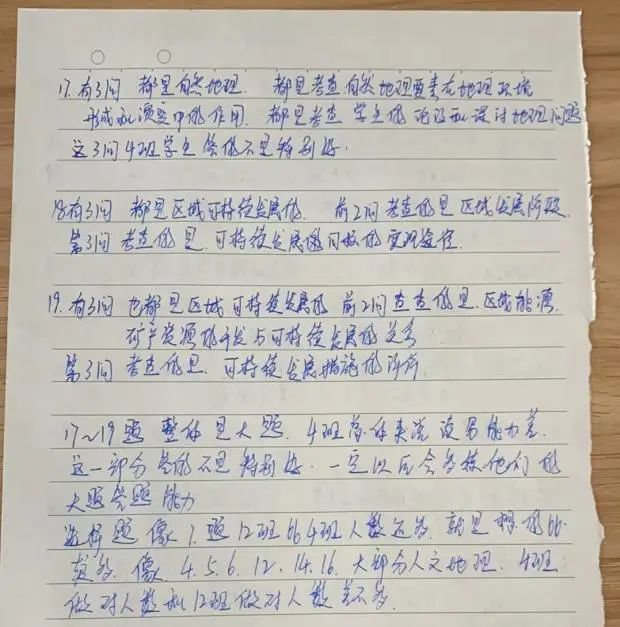 17. 有3问 都是自然地理. 都是考查自然地理要素在地理环境
形成和演变中的作用. 都是考查 学生的 论证和探讨地理问题
这3问4班学生答的不是特别好.
18有3问 都是区域可持续发展的. 前2问考查的是 区域发展阶段
第3问 考查的是. 可持续发展 的实现途径.
19. 有3问 也都是区域可持续发展的 前2问查查的是. 区域能源.
矿产资源的开发与可持续发展的关系
第3问 考查的是. 可持续发展措施的评价
17~19题 整体是大题. 4班总体来说 读写能力差.
这一部分答的不是特别好. 一定以后会多练他们的
大题答题能力
选择题 像1.题12班比4班人数还多. 就是 错的比
较多. 像. 4. 5. 6. 12. 14. 16. 大部分人文地理. 4班
做对人数和12班做对人数差不多.